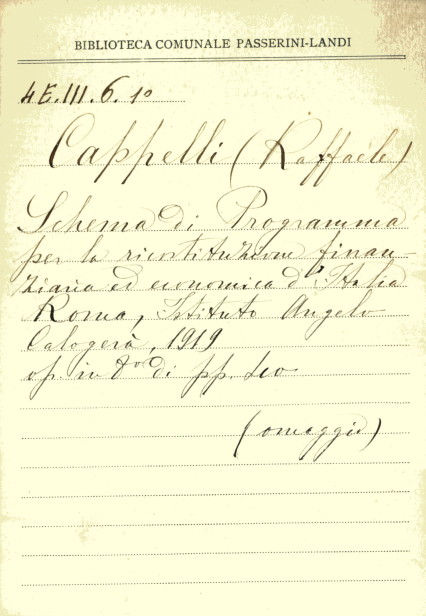 BIBLIOTECA COMUNALE PASSERINI-LANDI
4E.III.6.10
Cappelli (Raffaele)
Schema di Programma
per la ricostituzione finan-
ziaria ed economica d'Italia
Roma, Istituto Angelo
Calogerà, 1919
op. in 8o di pp.
(omaggio)